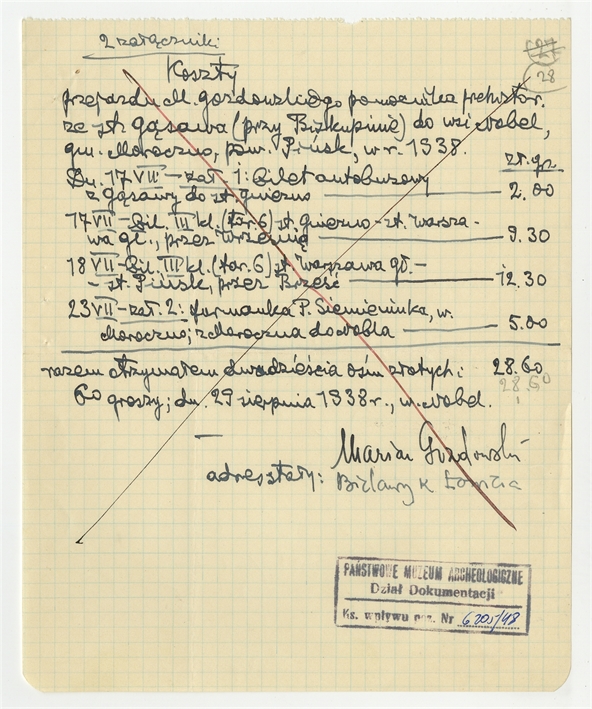 2 załączniki
28
Koszty
przejazdu M. Gozdowskiego pomocnika prehistor.
ze st. Gąsawa (przy Biskupinie) do wsi Nobel,
gm. Moroczno, pow. Pińsk, w r. 1938.
zł. gr.
Dn. 17 VII – zał. 1: Bilet autobusowy
z Gąsawy do st. Gniezno 2.00
17 VII – Bil. III kl. (tar. 6) st. Gniezno – st. Warsza-
wa gł., przez Wrześnią 9.30
18 VII – Bil. III kl. (tar. 6) st. Warszawa gł. –
– st. Pińsk, przez Brześć 12.30
23 VII – zał. 2: furmanka P. Siemieniuka, w.
Moroczno; z Moroczna do Nobla 5.00
razem otrzymałem dwadzieścia ośm złotych i 28.60
28.60
60 groszy; dn. 29 sierpnia 1938 r., w. Nobel.
Marian Gozdowski
adres stały: Bielawy k Łowicza
PAŃSTWOWE MUZEUM ARCHEOLOGICZNE
Dział Dokumentacji
Ks. wpływu poz. Nr 6205/48